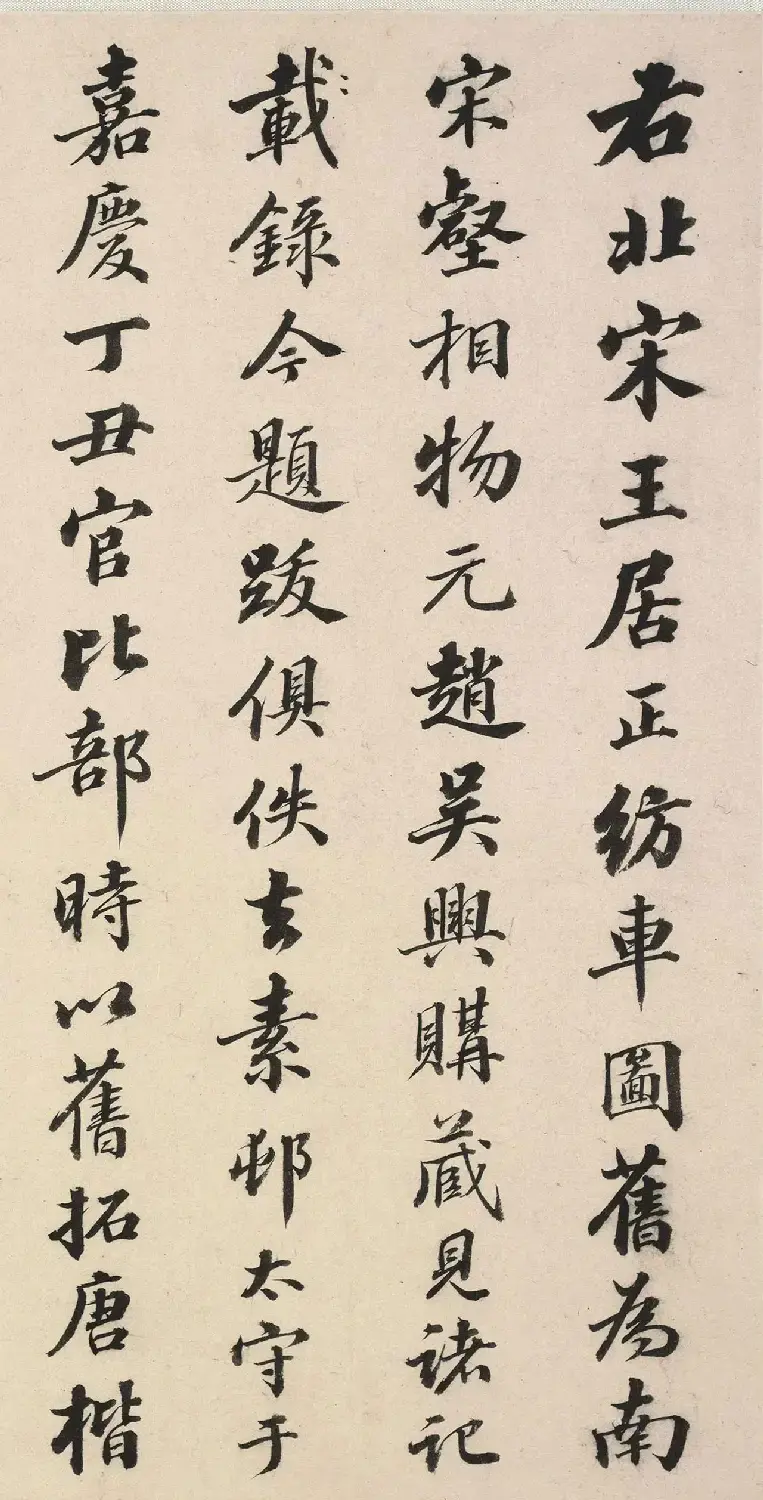 右北宋王居正紡車圖舊為南
宋壑相物元趙吳興購藏見諸記
載錄今題跋俱佚去素邨太守于
嘉慶丁丑官比部時以舊拓唐楷